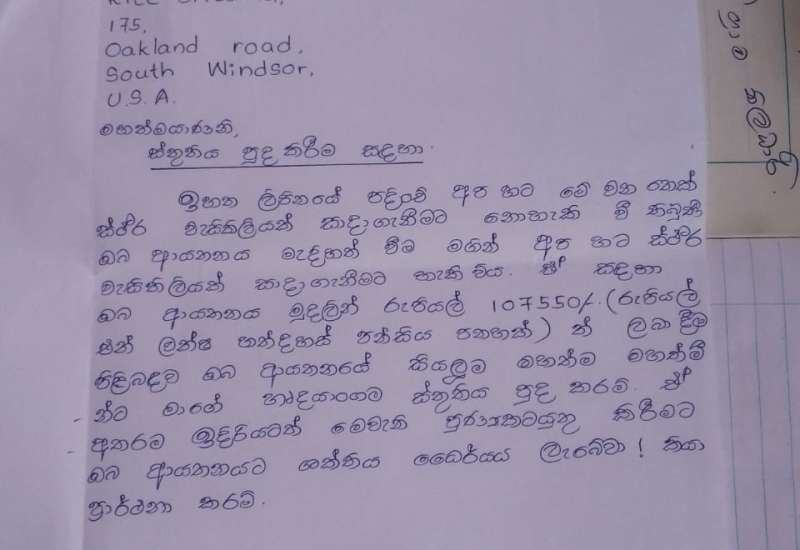 175,
Oakland road,
South Windsor,
U.S.A.
මහත්මයාණනි,
ස්තුතිය පුද කිරීම සඳහා.
ඉහත ලිපිනයේ පදිංචි අප හට මේ වන තෙක්
ස්ථිර වැසිකිලියක් සාදාගැනීමට නොහැකි වී තිබුණි
ඔබ ආයතනය මැදිහත් වීම මගින් අප හට ස්ථිර
වැසිකිලියක් සාදාගැනීමට හැකි විය. ඒ සඳහා
ඔබ ආයතනය මුදලින් රුපියල් 107550/.(රුපියල්
එක් ලක්ෂ හත්දහස් පන්සිය පනහක්) ක් ලබා දීම
පිළිබඳව ඔබ ආයතනයේ සියලුම මහත්ම මහත්මී
න්ට මාගේ හෘදයාංගම ස්තුතිය පුද කරමි. ඒ
අතරම ඉදිරියටත් මෙවැනි පුණ්‍යකටයුතු කිරීමට
ඔබ ආයතනයට ශක්තිය ධෛර්යය ලැබේවා! කියා
ප්‍රාර්ථනා කරමි.